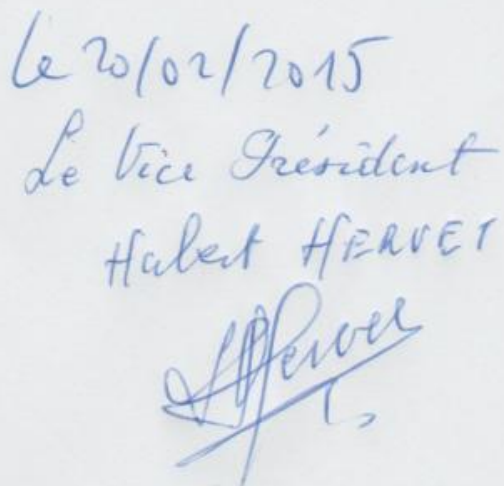 Le 20/02/2015
Le Vice Président
Hubert HERVET
HHervet